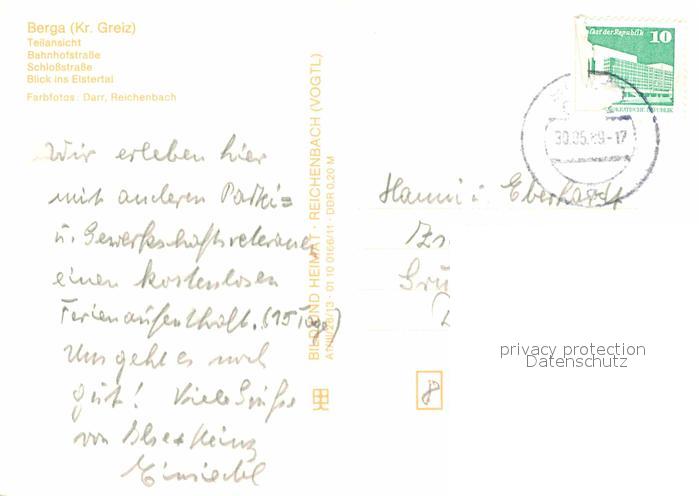 Berga (Kr. Greiz)
Teilansicht
Bahnhofstraße
Schloßstraße
Blick ins Elstertal
Farbfotos: Darr, Reichenbach
Wir erleben hier
mit anderen Partei=
u. Gewerkschaftsveteranen
einen kostenlosen
Ferienaufenthalt. (15 Tage)
Uns geht es noch
gut! Viele Grüße
von Ilse + Heinz
BILD UND HEIMAT · REICHENBACH (VOGTL)
A1/III/26/13 · 01 10 0166/11 · DDR 0,20 M
10
der Republik
KRATISCHE REPUBLIK
30.05.89-17
Hanni u. Eberhardt
8
privacy protection
Datenschutz